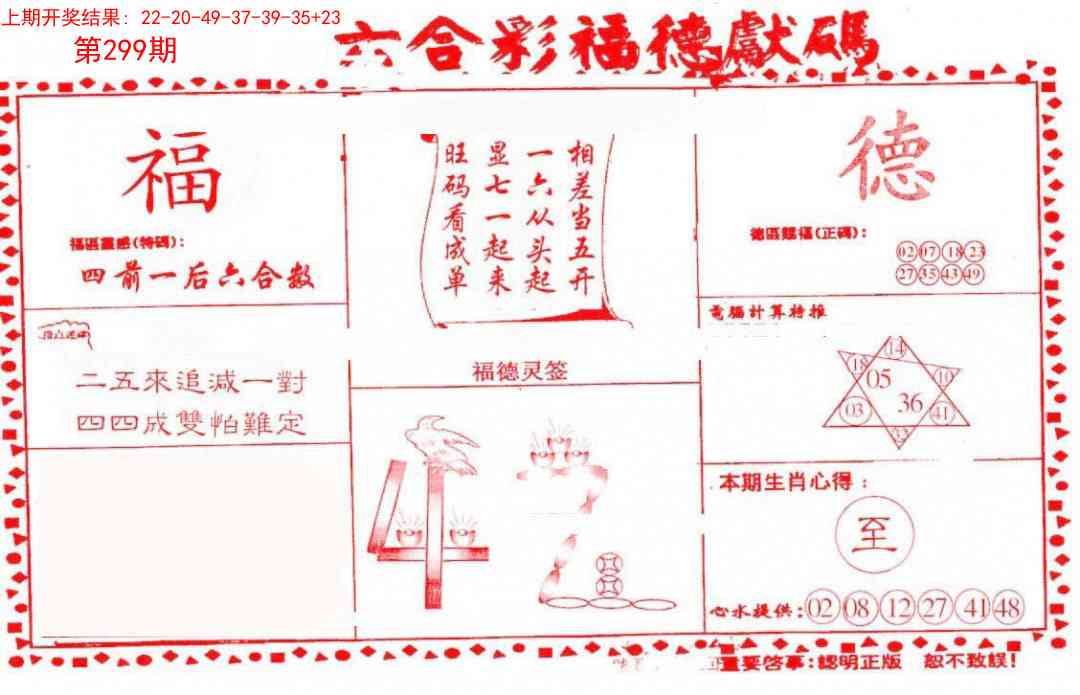 上期开奖结果: 22-20-49-37-39-35+23
第299期
六合彩福德獻碼
福
福區靈感(特碼):
四前一后六合数
相差当五开
一六从头起
显七一起来
旺码看成单
德
德區賜福(正碼):
02 07 18 23
27 35 43 49
二五來追減一對
四四成雙怕難定
福德灵签
電腦計算特推
14
18 05 10
03 36 41
33
本期生肖心得:
至
心水提供: 02 08 12 27 41 48
重要啓事:認明正版 恕不致誤!